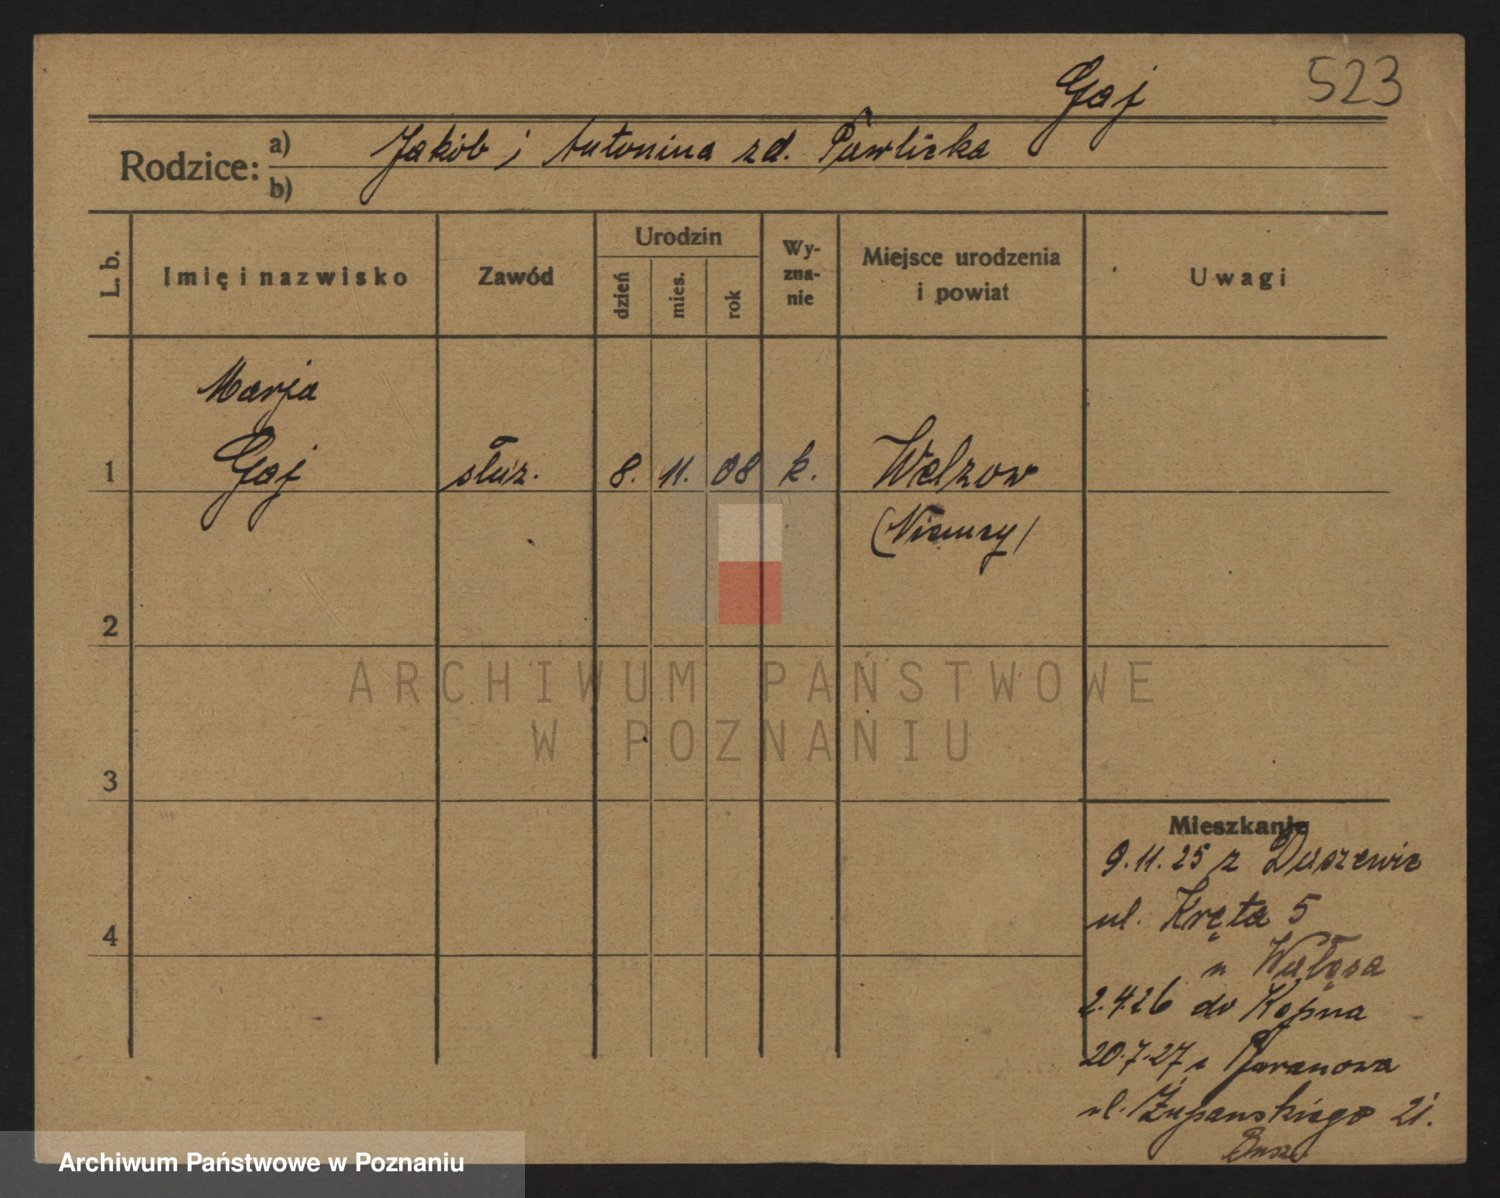 Gaj 523
Rodzice: a) Jakób i Antonina zd. Pawlicka
b)
L. b.
Imię i nazwisko
Zawód
Urodzin
dzień
mies.
rok
Wy-
zna-
nie
Miejsce urodzenia
i powiat
Uwagi
Marja
1 Gaj służ. 8. 11. 08 k. Welzow
(Niemcy)
2
3
4
Mieszkanie
9.11.25 z
ul. Kręta 5
u
2.4.26 do Kępna
20.7.27 z Baranowa
ul. Żupańskiego 21.
ARCHIWUM PAŃSTWOWE
W POZNANIU
Archiwum Państwowe w Poznaniu